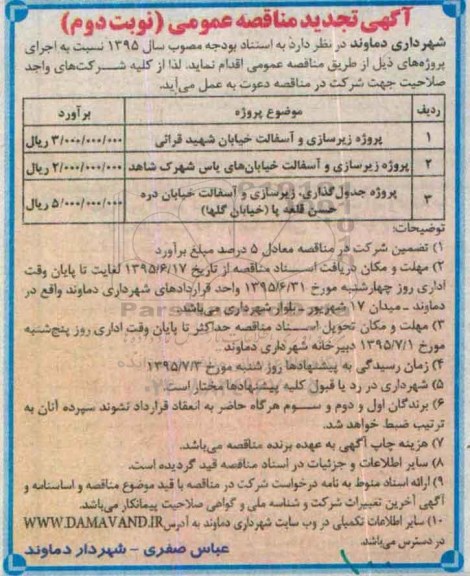 آگهی تجدید مناقصه عمومی (نوبت دوم)
شهرداری دماوند در نظر دارد به استناد بودجه مصوب سال ۱۳۹۵ نسبت به اجرای
پروژه‌های ذیل از طریق مناقصه عمومی اقدام نماید. لذا از کلیه شرکت‌های واجد
صلاحیت جهت شرکت در مناقصه دعوت به عمل می‌آید.
ردیف موضوع پروژه برآورد
۱ پروژه زیرسازی و آسفالت خیابان شهید قرائی ۳/۰۰۰/۰۰۰/۰۰۰ ریال
۲ پروژه زیرسازی و آسفالت خیابان‌های یاس شهرک شاهد ۲/۰۰۰/۰۰۰/۰۰۰ ریال
۳ پروژه جدول‌گذاری، زیرسازی و آسفالت خیابان دره
حسن قلعه پا (خیابان گلها) ۵/۰۰۰/۰۰۰/۰۰۰ ریال
توضیحات:
۱) تضمین شرکت در مناقصه معادل ۵ درصد مبلغ برآورد
۲) مهلت و مکان دریافت اسناد مناقصه از تاریخ ۱۳۹۵/۶/۱۷ لغایت تا پایان وقت
اداری روز چهارشنبه مورخ ۱۳۹۵/۶/۳۱ واحد قراردادهای شهرداری دماوند واقع در
دماوند ـ میدان ۱۷ شهریور ـ بلوار شهرداری می‌باشد.
۳) مهلت و مکان تحویل اسناد مناقصه حداکثر تا پایان وقت اداری روز پنج‌شنبه
مورخ ۱۳۹۵/۷/۱ دبیرخانه شهرداری دماوند.
۴) زمان رسیدگی به پیشنهادها روز شنبه مورخ ۱۳۹۵/۷/۳
۵) شهرداری در رد یا قبول کلیه پیشنهادها مختار است.
۶) برندگان اول و دوم و سوم هرگاه حاضر به انعقاد قرارداد نشوند سپرده آنان به
ترتیب ضبط خواهد شد.
۷) هزینه چاپ آگهی به عهده برنده مناقصه می‌باشد.
۸) سایر اطلاعات و جزئیات در اسناد مناقصه قید گردیده است.
۹) ارائه اسناد منوط به نامه درخواست شرکت در مناقصه با قید موضوع مناقصه و اساسنامه و
آگهی آخرین تغییرات شرکت و شناسه ملی و گواهی صلاحیت پیمانکار می‌باشد.
۱۰) سایر اطلاعات تکمیلی در وب سایت شهرداری دماوند به آدرس WWW.DAMAVAND.IR
در دسترس می‌باشد.
عباس صفری - شهردار دماوند